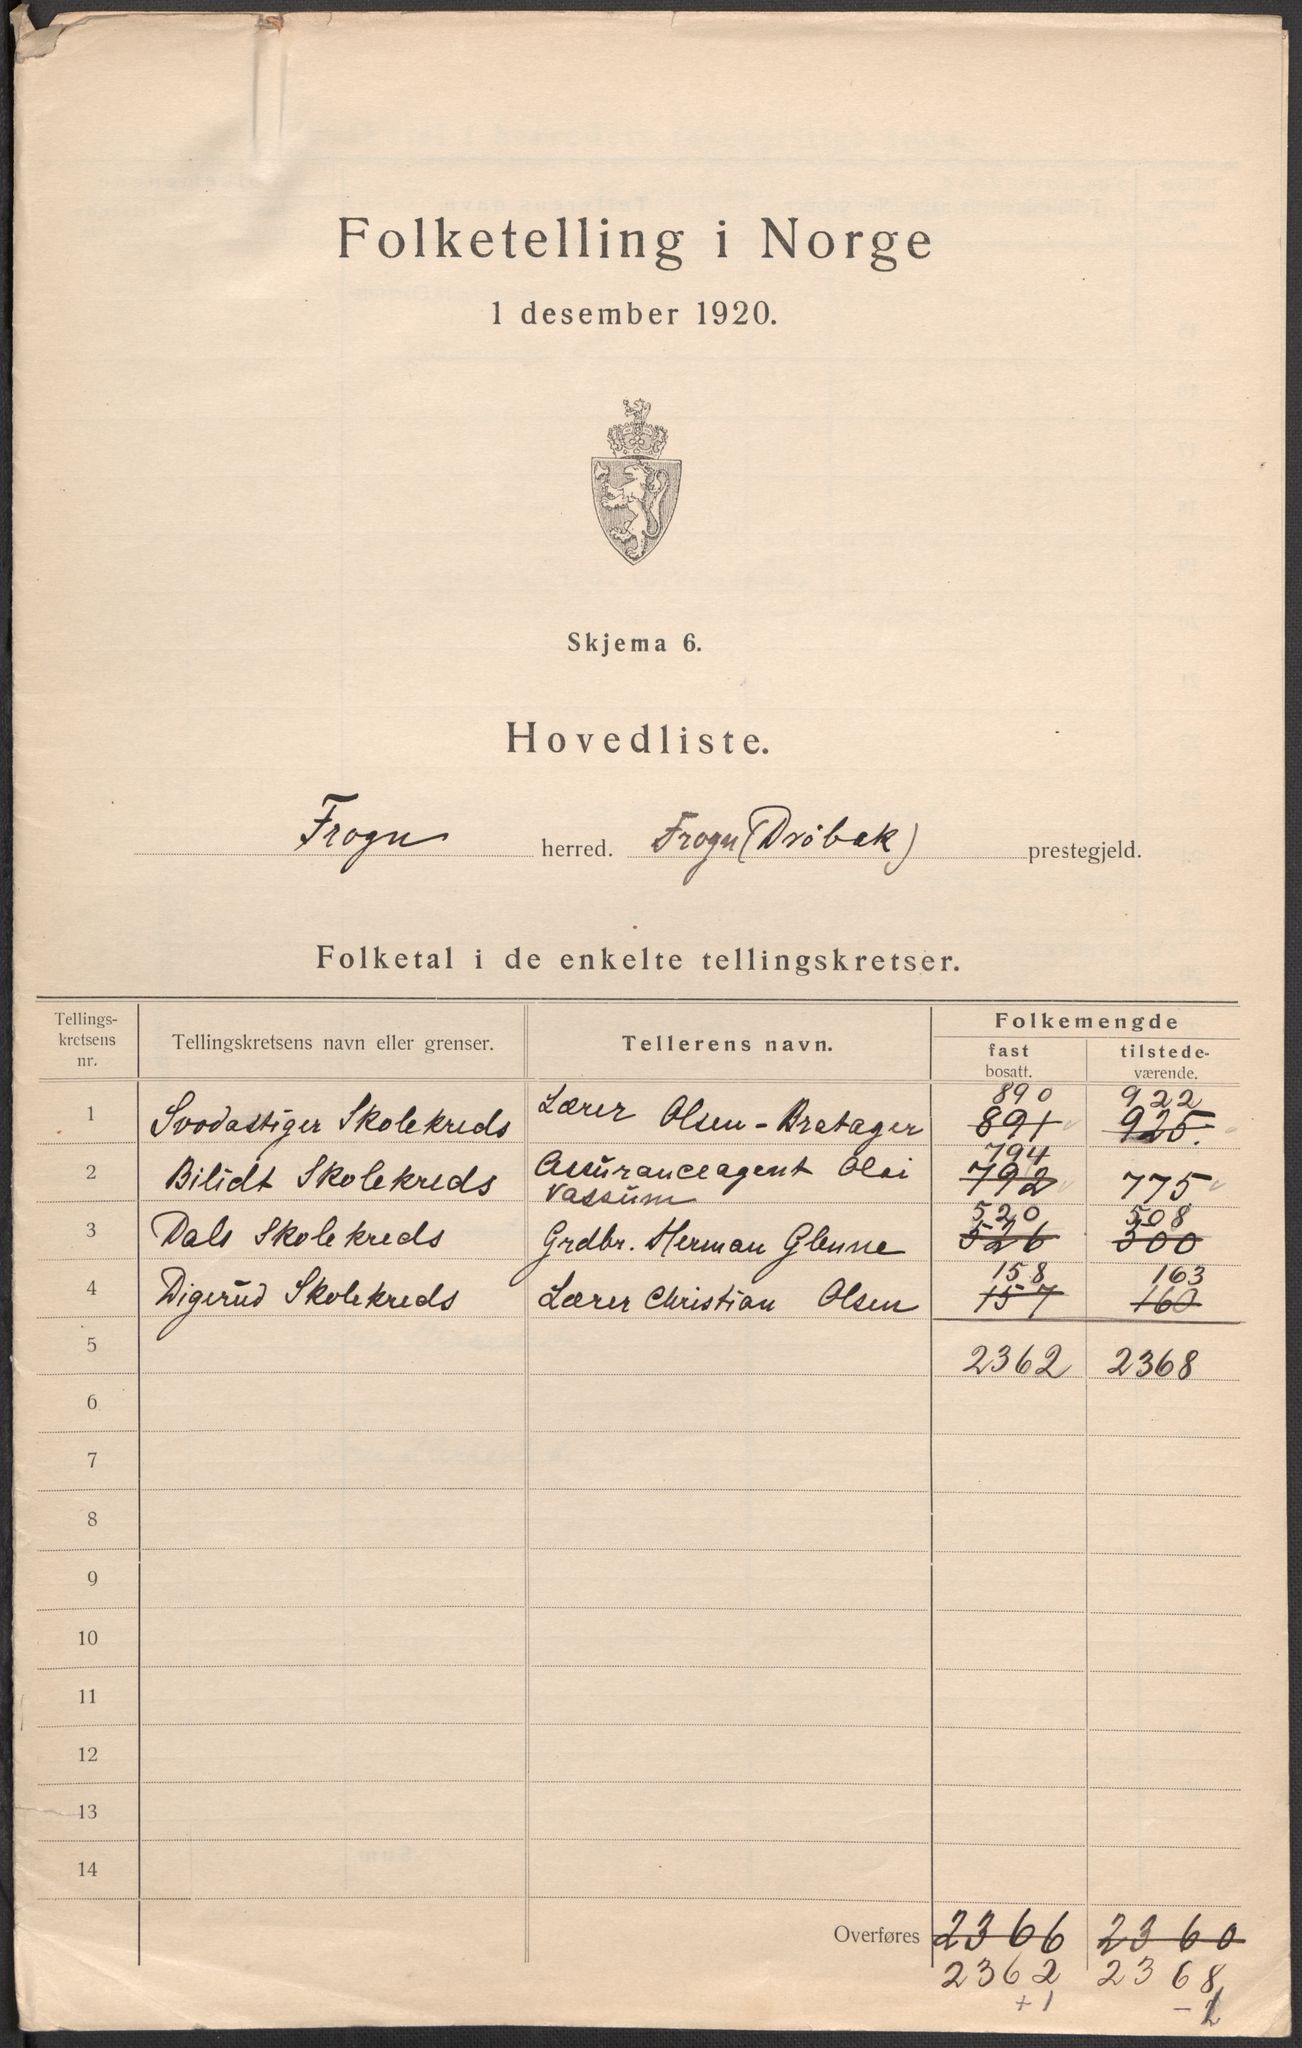 Folketelling i Norge
1 desember 1920.
Skjema 6.
Hovedliste.
Frogn herred. Frogn (Drøbak) prestegjeld.
Folketal i de enkelte tellingskretser.
Tellings-
kretsens
nr.
Tellingskretsens navn eller grenser.
Tellerens navn.
Folkemengde
fast
bosatt.
tilstede-
værende.
890 922
1 Skolekreds Lærer Olsen - Bratager 891 925.
794
2 Bilidt Skolekreds Assuranceagent Olai 792 775
Vassum
520 508
3 Dals Skolekreds Grdbr. Herman Glenne 526 500
158 163
4 Digerud Skolekreds Lærer Christian Olsen 157 160
5 2362 2368
6
7
8
9
10
11
12
13
14
Overføres 2366 2360
2362 2368
+1